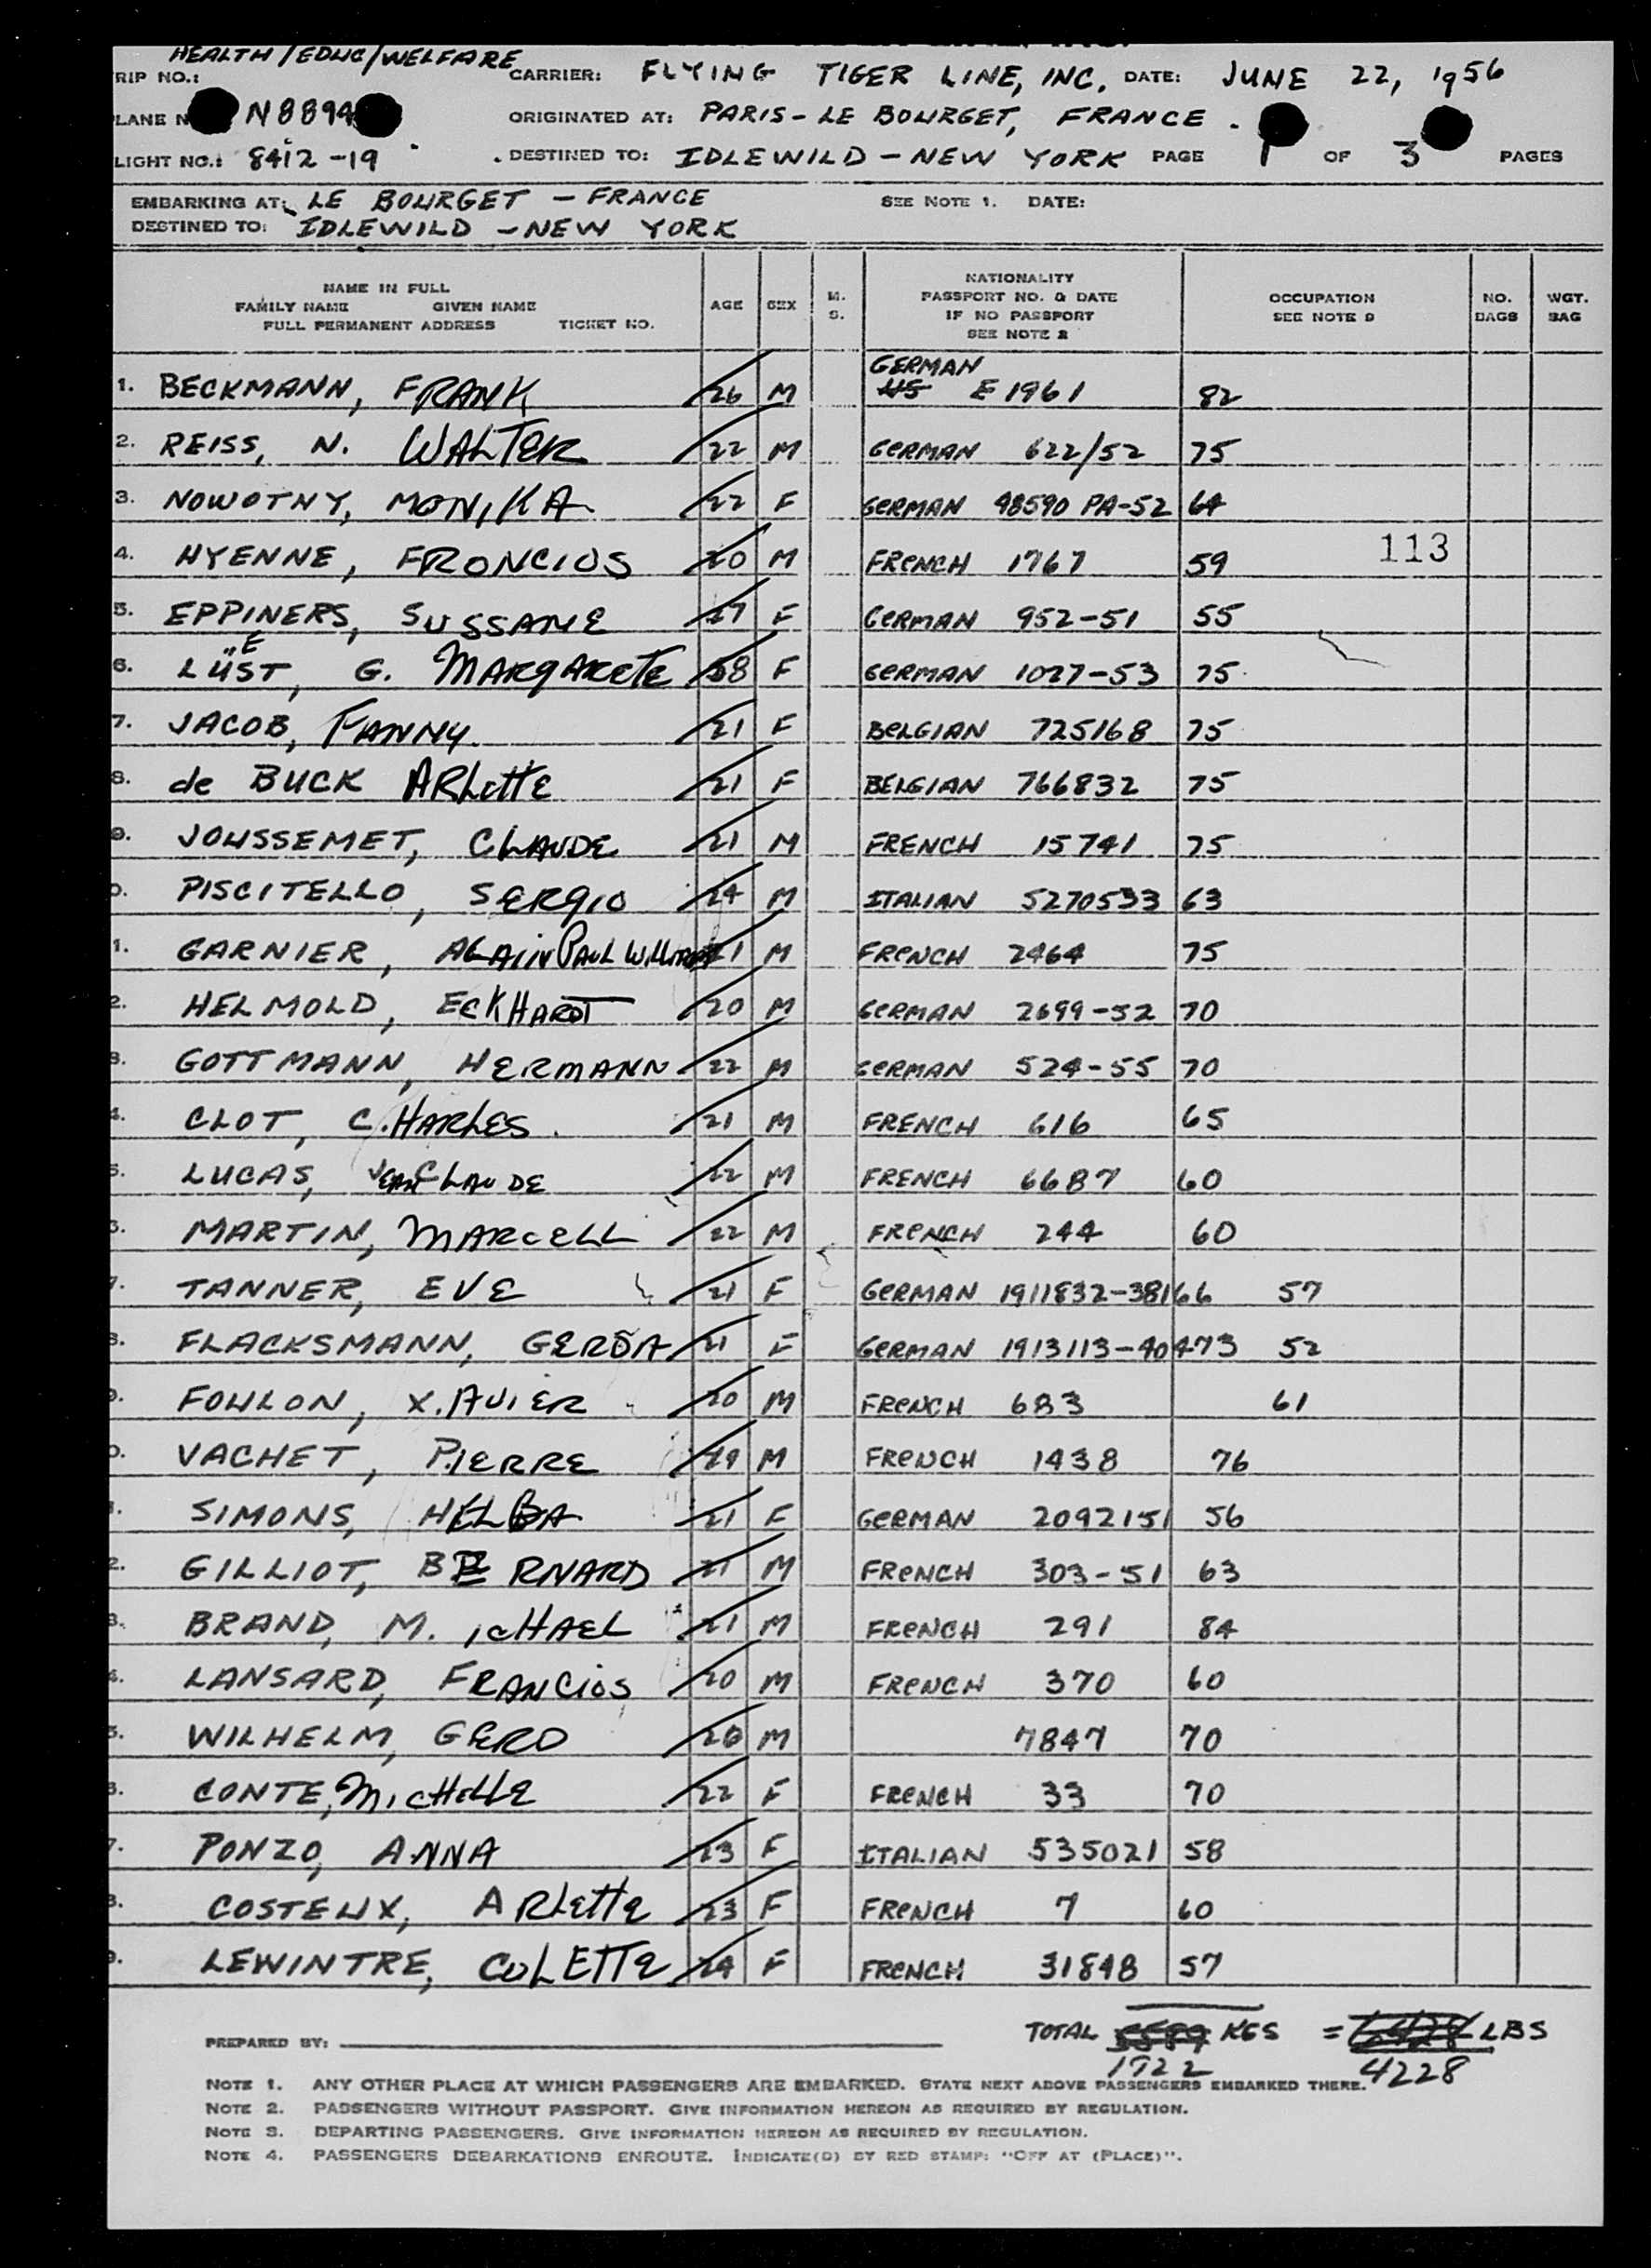 HEALTH/EDUC/WELFARE
RIP NO.: CARRIER: FLYING TIGER LINE, INC. DATE: JUNE 22, 1956
LANE N N8894 ORIGINATED AT: PARIS - LE BOURGET, FRANCE.
LIGHT NO.: 8412-19 DESTINED TO: IDLEWILD - NEW YORK PAGE 1 OF 3 PAGES
EMBARKING AT: LE BOURGET - FRANCE SEE NOTE 1. DATE:
DESTINED TO: IDLEWILD - NEW YORK
NAME IN FULL
FAMILY NAME GIVEN NAME
FULL PERMANENT ADDRESS TICKET NO.
AGE SEX M. S.
NATIONALITY
PASSPORT NO. & DATE
IF NO PASSPORT
SEE NOTE 2
OCCUPATION
SEE NOTE 3
NO. BAGS WGT. BAG
1. BECKMANN, FRANK 26 M GERMAN US E1961 82
2. REISS, N. WALTER 22 M GERMAN 622/52 75
3. NOWOTNY, MONIKA 22 F GERMAN 48590 PA-52 64
4. HYENNE, FRONCIOS 20 M FRENCH 1767 59 113
5. EPPINERS, SUSSANE 27 F GERMAN 952-51 55
6. LÜEST, G. MARGARETE 38 F GERMAN 1027-53 75
7. JACOB, FANNY 21 F BELGIAN 725168 75
8. de BUCK ARLETTE 21 F BELGIAN 766832 75
9. JOUSSEMET, CLAUDE 21 M FRENCH 15741 75
0. PISCITELLO, SERGIO 24 M ITALIAN 5270533 63
1. GARNIER, ALAIN PAUL WILLIAM 21 M FRENCH 2464 75
2. HELMOLD, ECKHARDT 20 M GERMAN 2699-52 70
3. GOTTMANN, HERMANN 22 M GERMAN 524-55 70
4. CLOT, C.HARLES 21 M FRENCH 616 65
5. LUCAS, JEAN CLAUDE 22 M FRENCH 6687 60
6. MARTIN, MARCELL 22 M FRENCH 244 60
7. TANNER, EVE 21 F GERMAN 1911832-38166 57
8. FLACKSMANN, GERDA 21 F GERMAN 1913113-40473 52
9. FOULON, X.AVIER 20 M FRENCH 683 61
0. VACHET, P.IERRE 19 M FRENCH 1438 76
1. SIMONS, HELGA 21 F GERMAN 2092151 56
2. GILLIOT, BERNARD 21 M FRENCH 303-51 63
3. BRAND, M. ICHAEL 21 M FRENCH 291 84
4. LANSARD, FRANCIOS 20 M FRENCH 370 60
5. WILHELM, GERD 20 M 7847 70
6. CONTE, MICHELLE 22 F FRENCH 33 70
7. PONZO, ANNA 23 F ITALIAN 535021 58
8. COSTEUX, ARLETTE 23 F FRENCH 7 60
9. LEWINTRE, COLETTE 24 F FRENCH 31848 57
TOTAL KGS = LBS
PREPARED BY:
1922 4228
NOTE 1. ANY OTHER PLACE AT WHICH PASSENGERS ARE EMBARKED. STATE NEXT ABOVE PASSENGERS EMBARKED THERE.
NOTE 2. PASSENGERS WITHOUT PASSPORT. GIVE INFORMATION HEREON AS REQUIRED BY REGULATION.
NOTE 3. DEPARTING PASSENGERS. GIVE INFORMATION HEREON AS REQUIRED BY REGULATION.
NOTE 4. PASSENGERS DEBARKATIONS ENROUTE. INDICATE(D) BY RED STAMP: "OFF AT (PLACE)".